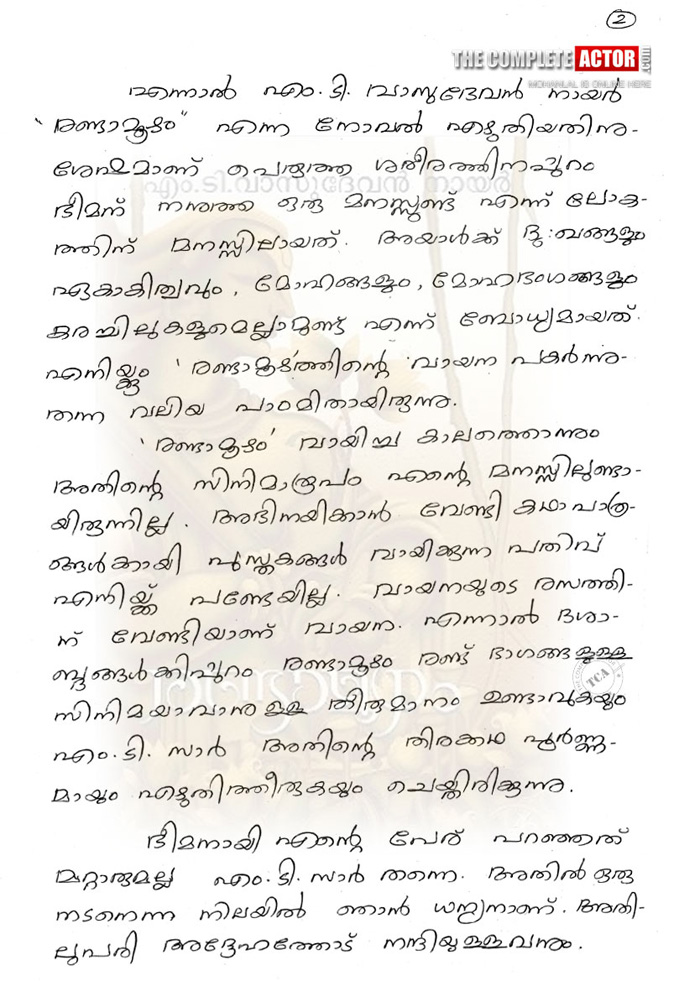 2
THE COMPLETE ACTOR.com
MOHANLAL IS ONLINE HERE
എന്നാൽ എം.ടി. വാസുദേവൻ നായർ
"രണ്ടാമൂഴം" എന്ന നോവൽ എഴുതിയതിനു-
ശേഷമാണ് പെരുത്ത ശരീരത്തിനപ്പുറം
എം.ടി.വാസുദേവൻ നായർ
ഭീമന് നനുത്ത ഒരു മനസ്സുണ്ട് എന്ന് ലോക-
ത്തിന് മനസ്സിലായത്. അയാൾക്ക് ദു:ഖങ്ങളും
ഏകാകിത്വവും, മോഹങ്ങളും, മോഹഭംഗങ്ങളും
കരച്ചിലുകളുമെല്ലാമുണ്ട് എന്ന് ബോധ്യമായത്.
എനിയ്ക്കും 'രണ്ടാമൂഴ'ത്തിന്റെ വായന പകർന്നു-
തന്ന വലിയ പാഠമിതായിരുന്നു.
'രണ്ടാമൂഴം' വായിച്ച കാലത്തൊന്നും
അതിന്റെ സിനിമാരൂപം എന്റെ മനസ്സിലുണ്ടാ-
യിരുന്നില്ല. അഭിനയിക്കാൻ വേണ്ടി കഥാപാത്ര-
ങ്ങൾക്കായി പുസ്തകങ്ങൾ വായിക്കുന്ന പതിവ്
എനിയ്ക്ക് പണ്ടേയില്ല. വായനയുടെ രസത്തി-
ന് വേണ്ടിയാണ് വായന. എന്നാൽ ദശാ-
ബ്ദങ്ങൾക്കിപ്പുറം രണ്ടാമൂഴം രണ്ട് ഭാഗങ്ങളുള്ള
TCA
രണ്ടാമൂഴം
സിനിമയാവാനുള്ള തീരുമാനം ഉണ്ടാവുകയും
എം.ടി. സാർ അതിന്റെ തിരക്കഥ പൂർണ്ണ-
മായും എഴുതിത്തീരുകയും ചെയ്തിരിക്കുന്നു.
ഭീമനായി എന്റെ പേര് പറഞ്ഞത്
മറ്റാരുമല്ല എം.ടി. സാർ തന്നെ. അതിൽ ഒരു
നടനെന്ന നിലയിൽ ഞാൻ ധന്യനാണ്. അതി-
ലുപരി അദ്ദേഹത്തോട് നന്ദിയുള്ളവനും.